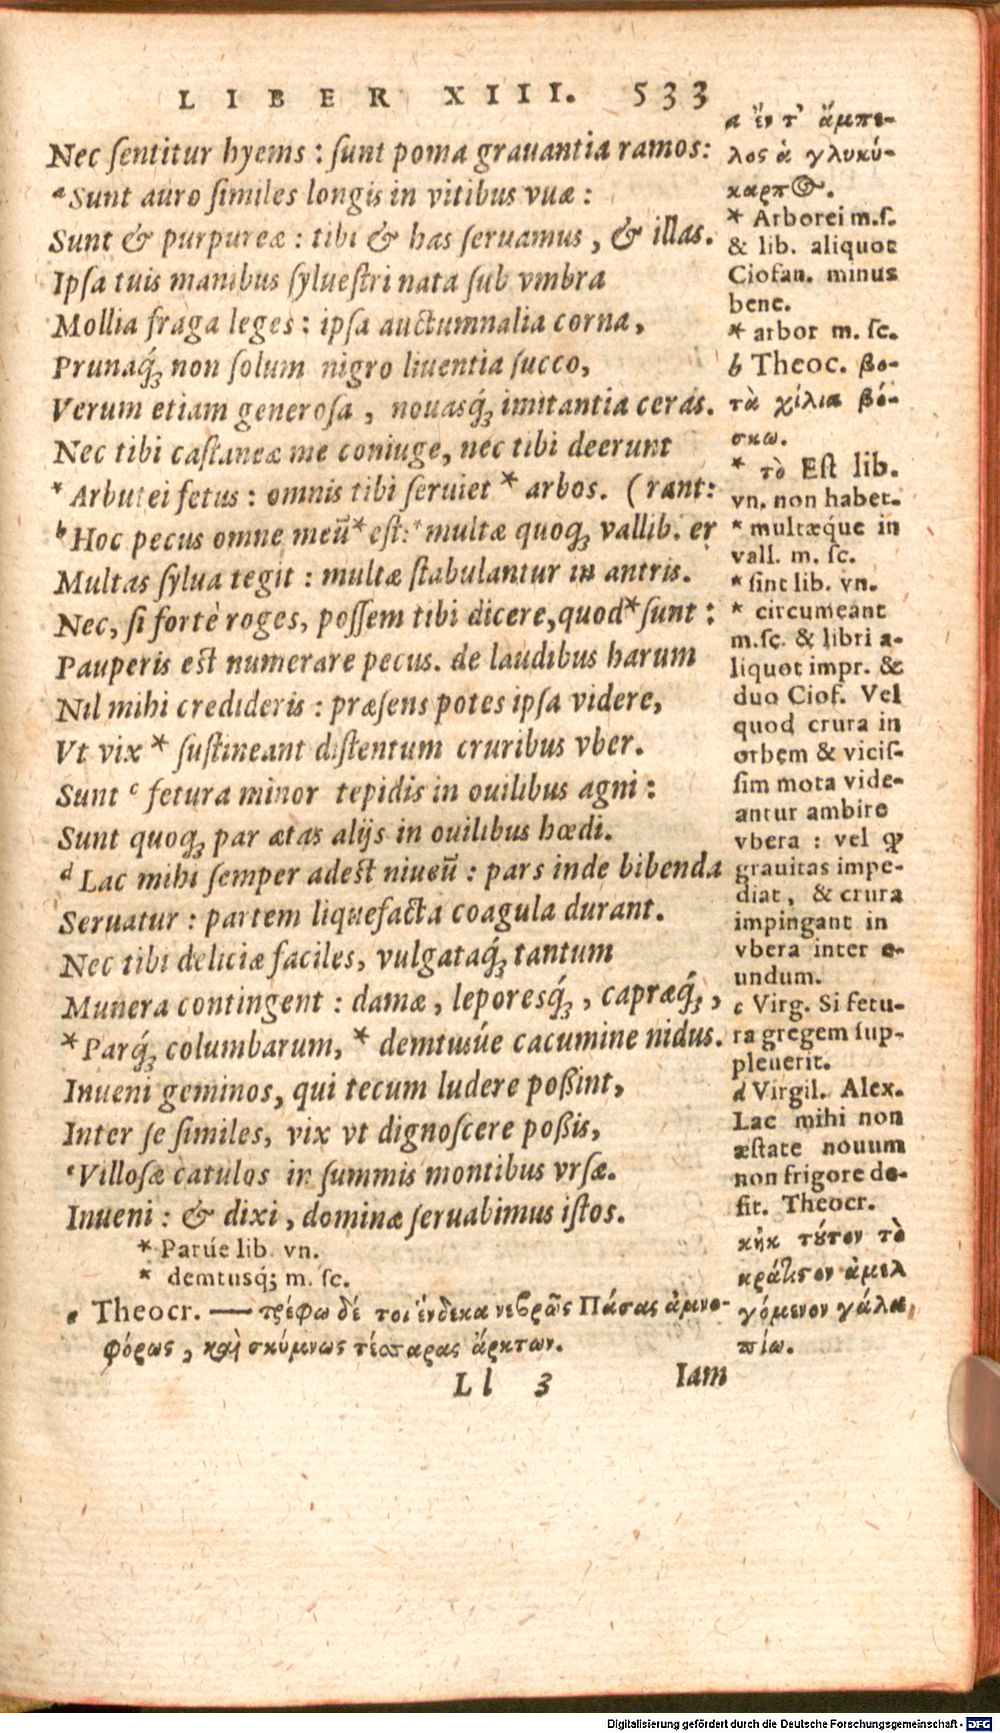 LIBER XIII. 533
Nec ſentitur hyems : ſunt poma grauantia ramos:
a Sunt auro ſimiles longis in vitibus vuæ :
Sunt & purpureæ : tibi & has ſeruamus, & illas.
Ipſa tuis manibus ſylueſtri nata ſub vmbra
Mollia fraga leges : ipſa auctumnalia corna,
Prunaq́ꝫ non ſolum nigro liuentia ſucco,
Verum etiam generoſa, nouasq́ꝫ imitantia ceras.
Nec tibi caſtaneæ me coniuge, nec tibi deerunt
* Arbutei fetus : omnis tibi ſeruiet * arbos. (rant:
b Hoc pecus omne meũ * eſt: * multæ quoqꝫ vallib. er
Multas ſylua tegit : multæ ſtabulantur in antris.
Nec, ſi fortè roges, poſſem tibi dicere, quod * ſunt :
Pauperis est numerare pecus. de laudibus harum
Nil mihi credideris : præſens potes ipſa videre,
Vt vix * ſuſtineant diſtentum cruribus vber.
Sunt c fetura minor tepidis in ouilibus agni :
Sunt quoqꝫ par ætas alijs in ouilibus hœdi.
d Lac mihi ſemper adeſt niueũ : pars inde bibenda
Seruatur : partem liquefacta coagula durant.
Nec tibi deliciæ faciles, vulgataq́ꝫ tantum
Munera contingent : damæ, leporesq́ꝫ, capræq́ꝫ,
* Parq́ꝫ columbarum, * demtusúe cacumine nidus.
Inueni geminos, qui tecum ludere poßint,
Inter ſe ſimiles, vix vt dignoſcere poßis,
e Villoſæ catulos in ſummis montibus vrſæ.
Inueni : & dixi, dominæ ſeruabimus iſtos.
* Parúe lib. vn.
* demtusq́; m. ſc.
e Theocr. — τρέφω δέ τοι ἕνδεκα νεβρὼς Πάσας ἀμνο-
φόρως, καὶ σκύμνως τέσσαρας ἄρκτων.
Ll 3 Iam
a ἔν τ' ἄμπε-
λος ἁ γλυκύ-
καρπος.
* Arborei m.ſ.
& lib. aliquot
Ciofan. minus
bene.
* arbor m. ſc.
b Theoc. βο-
τὰ χίλια βό-
σκω.
* τὸ Eſt lib.
vn. non habet.
* multæq́ue in
vall. m. ſc.
* ſint lib. vn.
* circumeant
m.ſc. & libri a-
liquot impr. &
duo Ciof. Vel
quod crura in
orbem & viciſ-
ſim mota vide-
antur ambire
vbera : vel ꝙ
grauitas impe-
diat, & crura
impingant in
vbera inter e-
undum.
c Virg. Si fetu-
ra gregem ſup-
pleuerit.
d Virgil. Alex.
Lac mihi non
æſtate nouum
non frigore de-
fit. Theocr.
κἠκ τούτων τὸ
κράτιστον ἀμελ
γόμενον γάλα,
πίω.
Digitalisierung gefördert durch die Deutsche Forschungsgemeinschaft - DFG